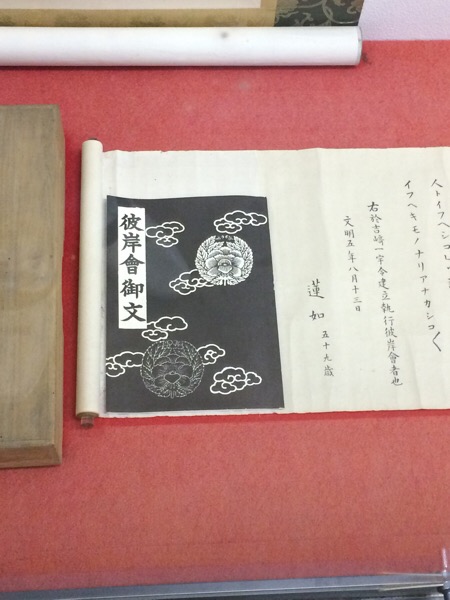 人トイフヘシコレ
イフヘキモノナリアナカシコ〱
右於吉崎一宇令建立執行彼岸會者也
文明五年八月十三日
蓮如 五十九歳
彼岸會御文